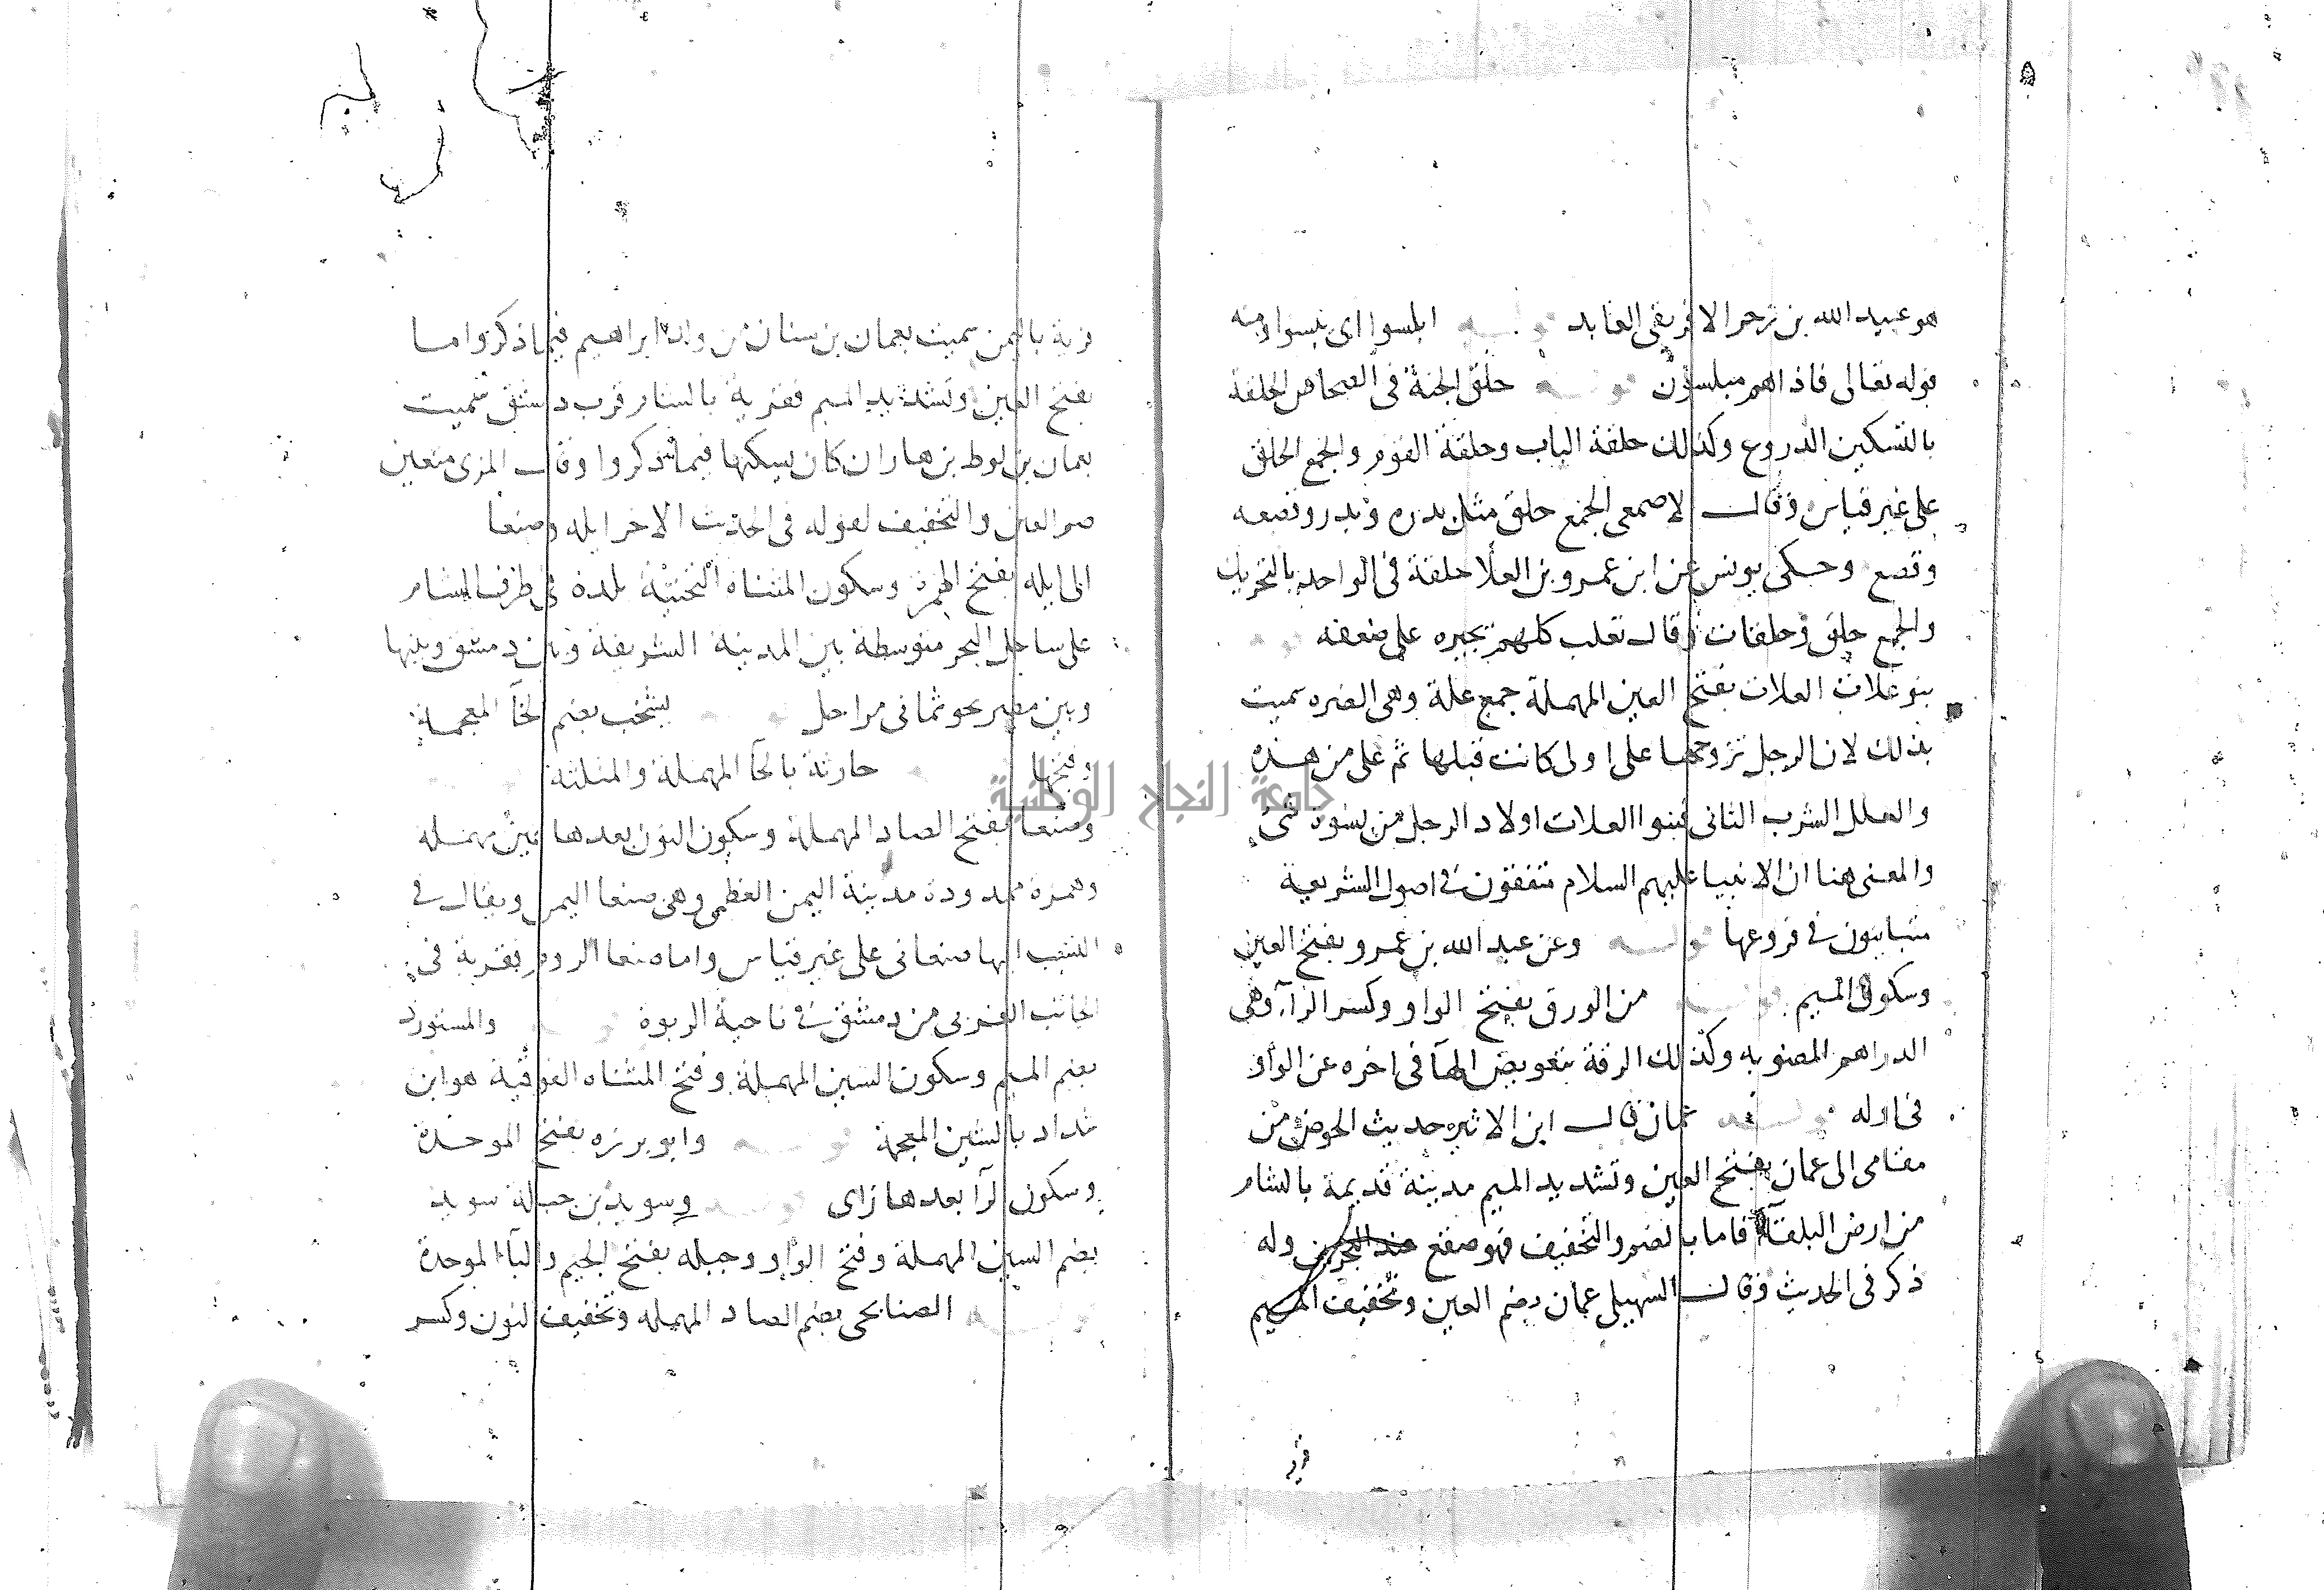 هو عبيد الله بن زحر الافريقي العابد قوله ابلسوا اى يئسوا ومنه
قوله تعالى فاذا هم مبلسون قوله حلق الجنة فى الصحاح الحلقة
بالتسكين الدروع وكذلك حلقة الباب وحلقة القوم والجمع الحلق
على غير قياس وقال الاصمعى الجمع حلق مثل بدره وبدر وقصعه
وقصع وحكى يونس عن ابن عمرو بن العلا حلقة فى الواحد بالتحريك
والجمع حلق وحلقات وقال ثعلب كلهم يجيزه على ضعفه قوله
بنو علات العلات بفتح العين المهملة جمع علة وهى الضره سميت
بذلك لان الرجل تزوجها على اولى كانت قبلها ثم على من هذه
والعلل الشرب الثانى فبنوا العلات اولاد الرجل من نسوة شتى
والمعنى هنا ان الانبيا عليهم السلام متفقون فى اصول الشريعة
متباينون فى فروعها قوله وعن عبد الله بن عمرو بفتح العين
وسكون الميم قوله من الورق بفتح الواو وكسر الرآ وهى
الدراهم المضروبه وكذلك الرقة بتعويض الهآ فى اخره عن الواو
فى اوله قوله عمان قال ابن الاثير حديث الحوض من
مقامى الى عمان بفتح العين وتشديد الميم مدينة قديمة بالشام
من ارض البلقآ فاما بالضم والتخفيف فهو صقع عند البحرين وله
ذكر فى الحديث وقال السهيلى عمان بضم العين وتخفيف الميم
قرية
قرية باليمن سميت بعمان بن سنان من ولد ابراهيم فيما ذكروا اما
بفتح العين وتشديد الميم فقرية بالشام قرب دمشق سميت
بعمان بن لوط بن هاران كان يسكنها فيما ذكروا وقال المزى متعين
ضم العين والتخفيف لقوله فى الحديث الاخر ايله وصنعا
الى ايله بفتح الهمزة وسكون المثناه التحتية بلدة فى طرف الشام
على ساحل البحر متوسطة بين المدينة الشريفة وبين دمشق وبينها
وبين مصر نحو ثمانى مراحل قوله يشخب بضم الخآ المعجمة
وفتحها قوله حارثة بالحآ المهملة والمثلثة
وصنعا بفتح الصاد المهملة وسكون النون بعدها عين مهملة
وهمزة ممدودة مدينة اليمن العظمى وهى صنعا اليمن ويقال فى
النسب اليها صنعانى على غير قياس واما صنعا الروم فقرية فى
الجانب الغربى من دمشق فى ناحية الربوة قوله والمستورد
بضم الميم وسكون السين المهملة وفتح المثناه الفوقية هو ابن
شداد بالشين المعجمة قوله وابو برزه بفتح الموحدة
وسكون الرآ بعدها زاى قوله وسويد بن جبلة سويد
بضم السين المهملة وفتح الواو وجبله بفتح الجيم والبآ الموحدة
قوله الصنابحى بضم الصاد المهمله وتخفيف النون وكسر
جامعة النجاح الوطنية